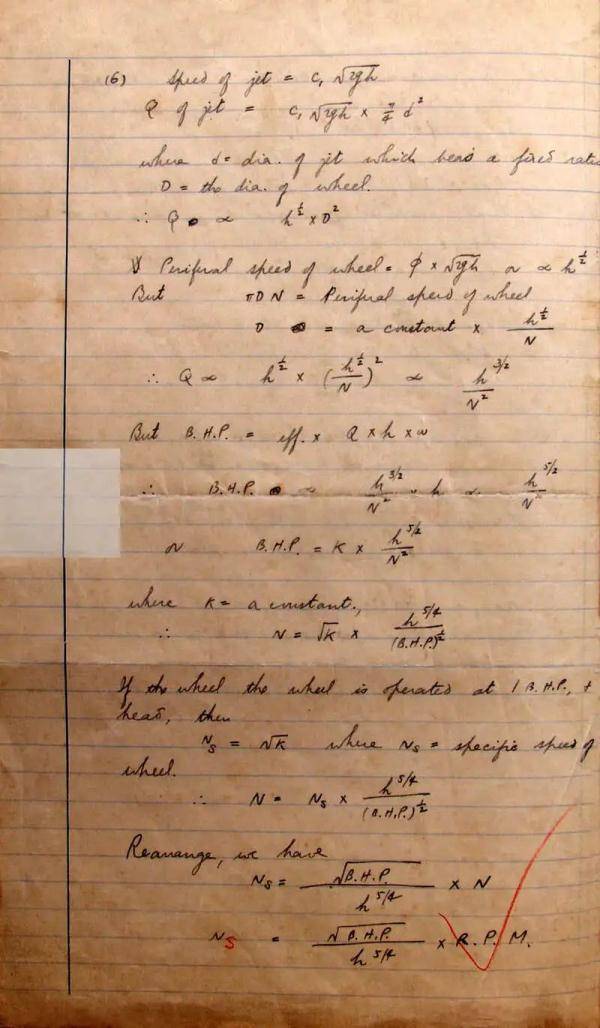 (6) Speed of jet = c, √2gh
Q of jet = c, √2gh × π/4 d²
where d = dia. of jet which bears a fixed ratio
D = the dia. of wheel.
∴ Q ∝ h^½ × D²
Periferal speed of wheel = φ × √2gh or ∝ h^½
But πDN = Periferal speed of wheel
D = a constant × h^½/N
∴ Q ∝ h^½ × (h^½/N)² ∝ h^3/2/N²
But B.H.P. = eff. × Q × h × w
∴ B.H.P. ∝ h^3/2/N² × h ∝ h^5/2/N²
or B.H.P. = K × h^5/2/N²
where K = a constant,
∴ N = √K × h^5/4/(B.H.P.)^½
If the wheel the wheel is operated at 1 B.H.P., +
head, then
Ns = √K where Ns = specific speed of
wheel.
∴ N = Ns × h^5/4/(B.H.P.)^½
Rearrange, we have
Ns = √B.H.P./h^5/4 × N
Ns = √B.H.P./h^5/4 × R.P.M.